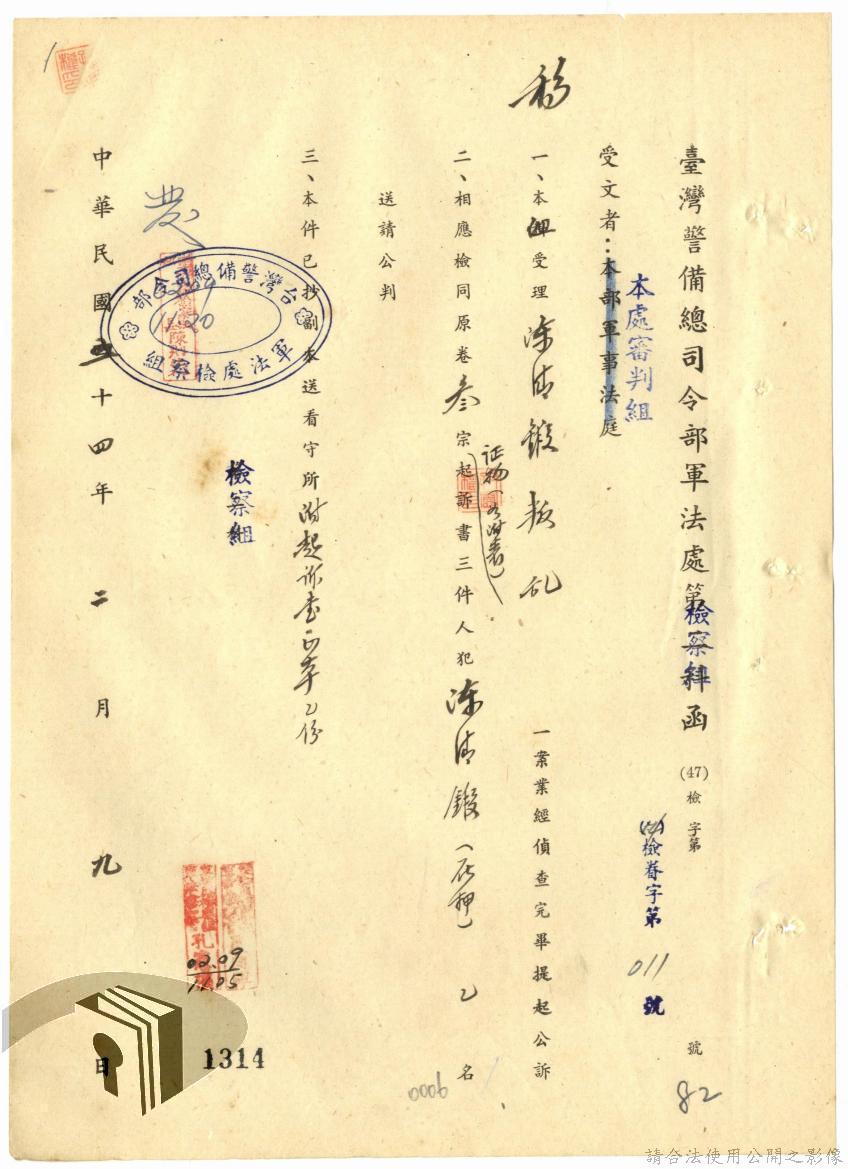 稿
臺灣警備總司令部軍法處第檢察科函
(47)檢字第 號
檢眷字第011號
82
受文者：本部軍事法庭
本處審判組
一、本組受理 叛乱 一案業經偵查完畢提起公訴
二、相應檢同原卷叁宗起訴書三件人犯 (在押) 乙名
证物(如附表)
送請公判
三、本件已抄副本送看守所附起诉書正本乙份
檢察組
台灣警備總司令部
軍法處檢察組
11.20
中華民國五十四年二月九日
02.09
11.05
1314
0006
請合法使用公開之影像